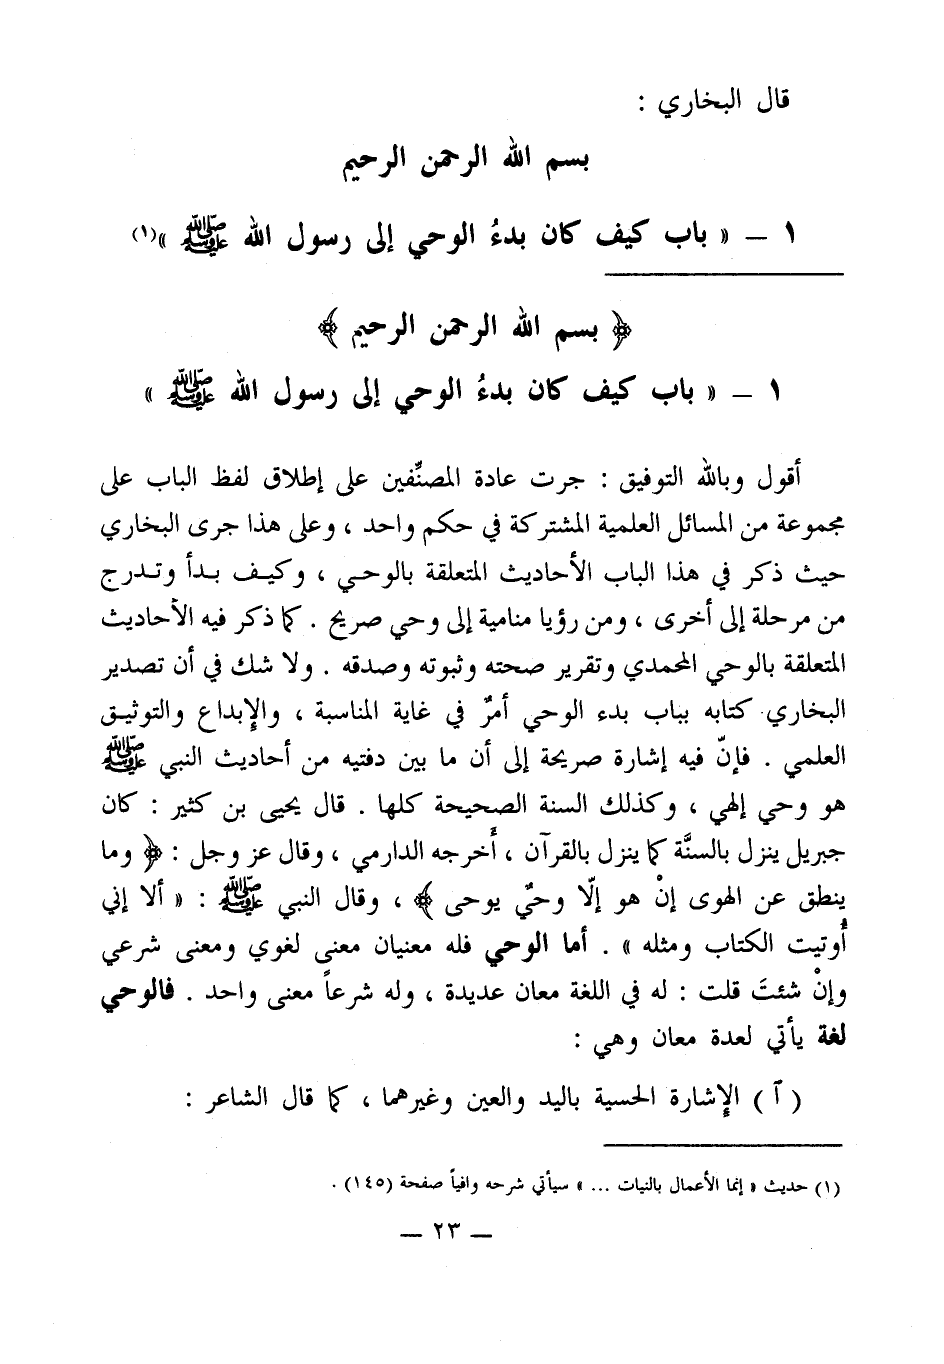 قال البخاري :
بسم الله الرحمن الرحيم
١ – « باب كيف كان بدءُ الوحي إلى رسول الله ﷺ »(١)
﴿ بسم الله الرحمن الرحيم ﴾
١ – « باب كيف كان بدءُ الوحي إلى رسول الله ﷺ »
أقول وبالله التوفيق : جرت عادة المصنِّفين على إطلاق لفظ الباب على
مجموعة من المسائل العلمية المشتركة في حكم واحد ، وعلى هذا جرى البخاري
حيث ذكر في هذا الباب الأحاديث المتعلقة بالوحي ، وكيف بدأ وتدرج
من مرحلة إلى أخرى ، ومن رؤيا منامية إلى وحي صريح . كما ذكر فيه الأحاديث
المتعلقة بالوحي المحمدي وتقرير صحته وثبوته وصدقه . ولا شك في أن تصدير
البخاري كتابه بباب بدء الوحي أمرٌ في غاية المناسبة ، والإبداع والتوثيق
العلمي . فإنّ فيه إشارة صريحة إلى أن ما بين دفتيه من أحاديث النبي ﷺ
هو وحي إلهي ، وكذلك السنة الصحيحة كلها . قال يحيى بن كثير : كان
جبريل ينزل بالسنَّة كما ينزل بالقرآن ، أخرجه الدارمي ، وقال عز وجل : ﴿ وما
ينطق عن الهوى إنْ هو إلّا وحيٌ يوحى ﴾ ، وقال النبي ﷺ : « ألا إني
أُوتيت الكتاب ومثله » . أما الوحي فله معنيان معنى لغوي ومعنى شرعي
وإنْ شئتَ قلت : له في اللغة معان عديدة ، وله شرعاً معنى واحد . فالوحي
لغة يأتي لعدة معان وهي :
( آ ) الإشارة الحسية باليد والعين وغيرهما ، كما قال الشاعر :
(١) حديث « إنما الأعمال بالنيات ... » سيأتي شرحه وافياً صفحة (١٤٥) .
– ٢٣ –